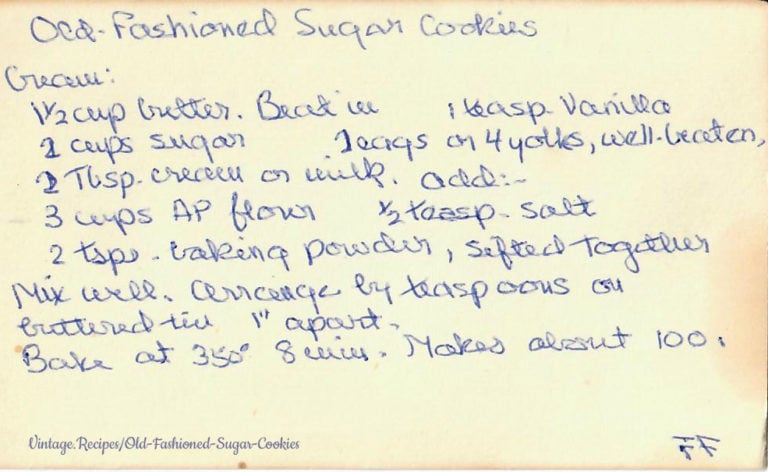 Old-Fashioned Sugar Cookies
Cream:
1½ cup butter. Beat in 1 teasp. Vanilla
2 cups sugar 2 eggs or 4 yolks, well-beaten,
2 Tbsp. cream or milk. add:-
3 cups AP flour ½ teasp. salt
2 tsps. baking powder, sifted together
Mix well. Arrange by teaspoons on
buttered tin 1" apart.
Bake at 350° 8 min. Makes about 100.
Vintage.Recipes/Old-Fashioned-Sugar-Cookies
FF